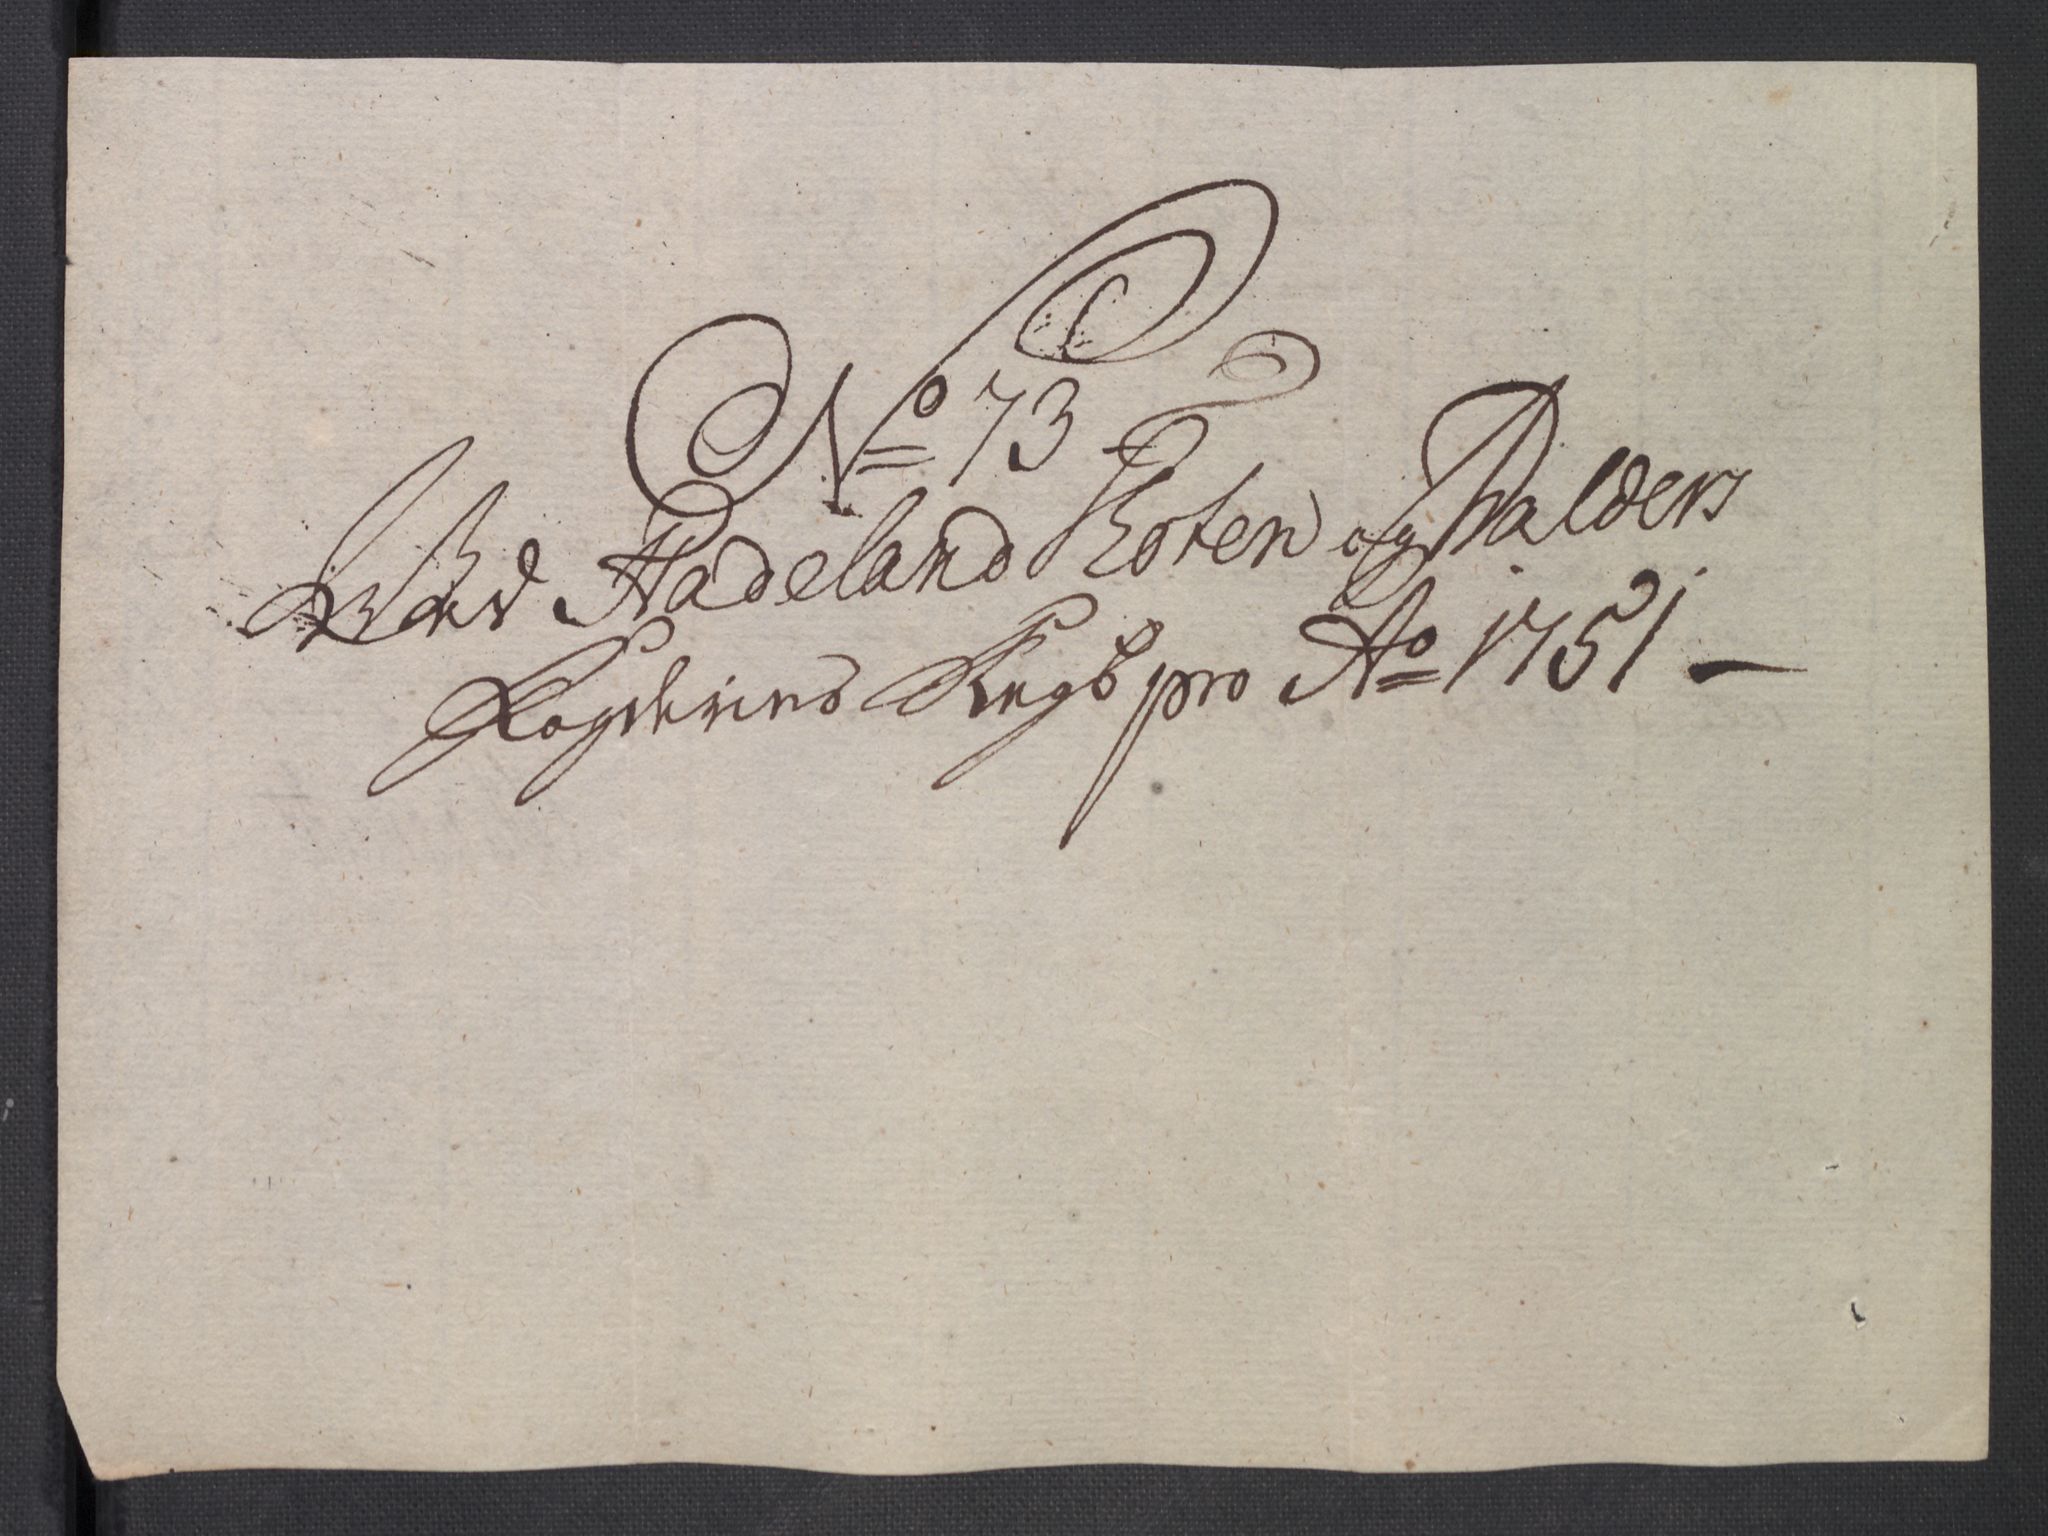 No 73
Ved Hadeland Toten og Walders
Fogderies Regsk pro Ao 1751